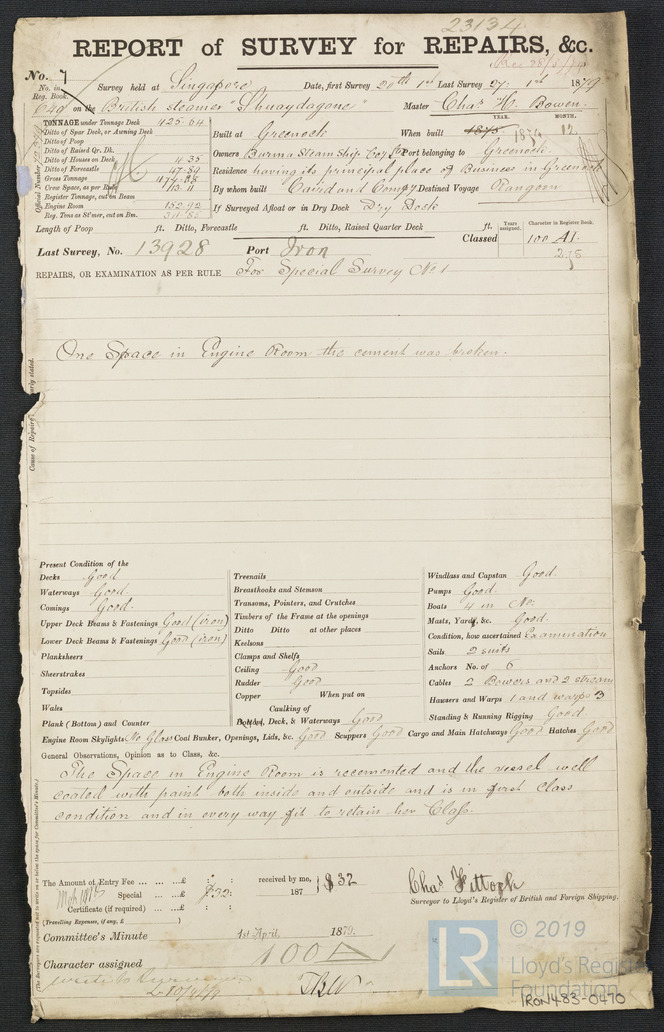 23134
REPORT of SURVEY for REPAIRS, &c.
No. 7
No. in Reg. Book.
Survey held at Singapore Date, first Survey 20th Last Survey 27. 1879
640 on the British steamer "Shuaydagone" Master Chas. H. Bowen
TONNAGE under Tonnage Deck 425.64
Ditto of Spar Deck, or Awning Deck
Ditto of Poop
Ditto of Raised Qr. Dk.
Ditto of House on Deck 4.35
Ditto of Forecastle
Gross Tonnage
Crew Space, as per Rule
Register Tonnage, cut on Beam
Engine Room 152.92
Reg. Tons as St'mer, cut on Bm.
Official Number
Built at Greenock When built 1875 1874 YEAR. MONTH. 12
Owners Burma Steam Ship Coy Ld Port belonging to Greenock
Residence having its principal place of Business in Greenock
By whom built Caird and Compy Destined Voyage Rangoon
If Surveyed Afloat or in Dry Dock Dry Dock
Length of Poop ft. Ditto, Forecastle ft. Ditto, Raised Quarter Deck ft.
Years assigned. Character in Register Book.
Classed 100 A1.
Last Survey, No. 13928 Port Iron
REPAIRS, OR EXAMINATION AS PER RULE For Special Survey No 1
One Space in Engine Room the cement was broken.
Present Condition of the
Decks Good
Waterways Good
Comings Good.
Upper Deck Beams & Fastenings Good (iron)
Lower Deck Beams & Fastenings Good (iron)
Planksheers
Sheerstrakes
Topsides
Wales
Plank (Bottom) and Counter
Treenails
Breasthooks and Stemson
Transoms, Pointers, and Crutches
Timbers of the Frame at the openings
Ditto Ditto at other places
Keelsons
Clamps and Shelfs
Ceiling Good
Rudder Good
Copper When put on
Caulking of
Bottom, Deck, & Waterways Good
Windlass and Capstan Good.
Pumps Good.
Boats 4 in No.
Masts, Yards, &c. Good.
Condition, how ascertained Examination
Sails 2 suits
Anchors No. of 6
Cables 2 Bowers and 2 stream
Hawsers and Warps 1 and warps 3
Standing & Running Rigging Good.
Engine Room Skylights No Glass Coal Bunker, Openings, Lids, &c. Good Scuppers Good Cargo and Main Hatchways Good Hatches Good
General Observations, Opinion as to Class, &c.
The Space in Engine Room is recemented and the vessel well
coated with paint both inside and outside and is in first class
condition and in every way fit to retain her Class.
The Amount of Entry Fee ... ... ...£ : : received by me,
Special ... ...£ $32: 187 $32
Certificate (if required) ... ...£ : :
(Travelling Expenses, if any, £ )
Chas Wittoph
Surveyor to Lloyd's Register of British and Foreign Shipping.
Committee's Minute 1st April, 1879.
Character assigned 100 A
© 2019
LR
Lloyd's Register
Foundation
IRON483-0470